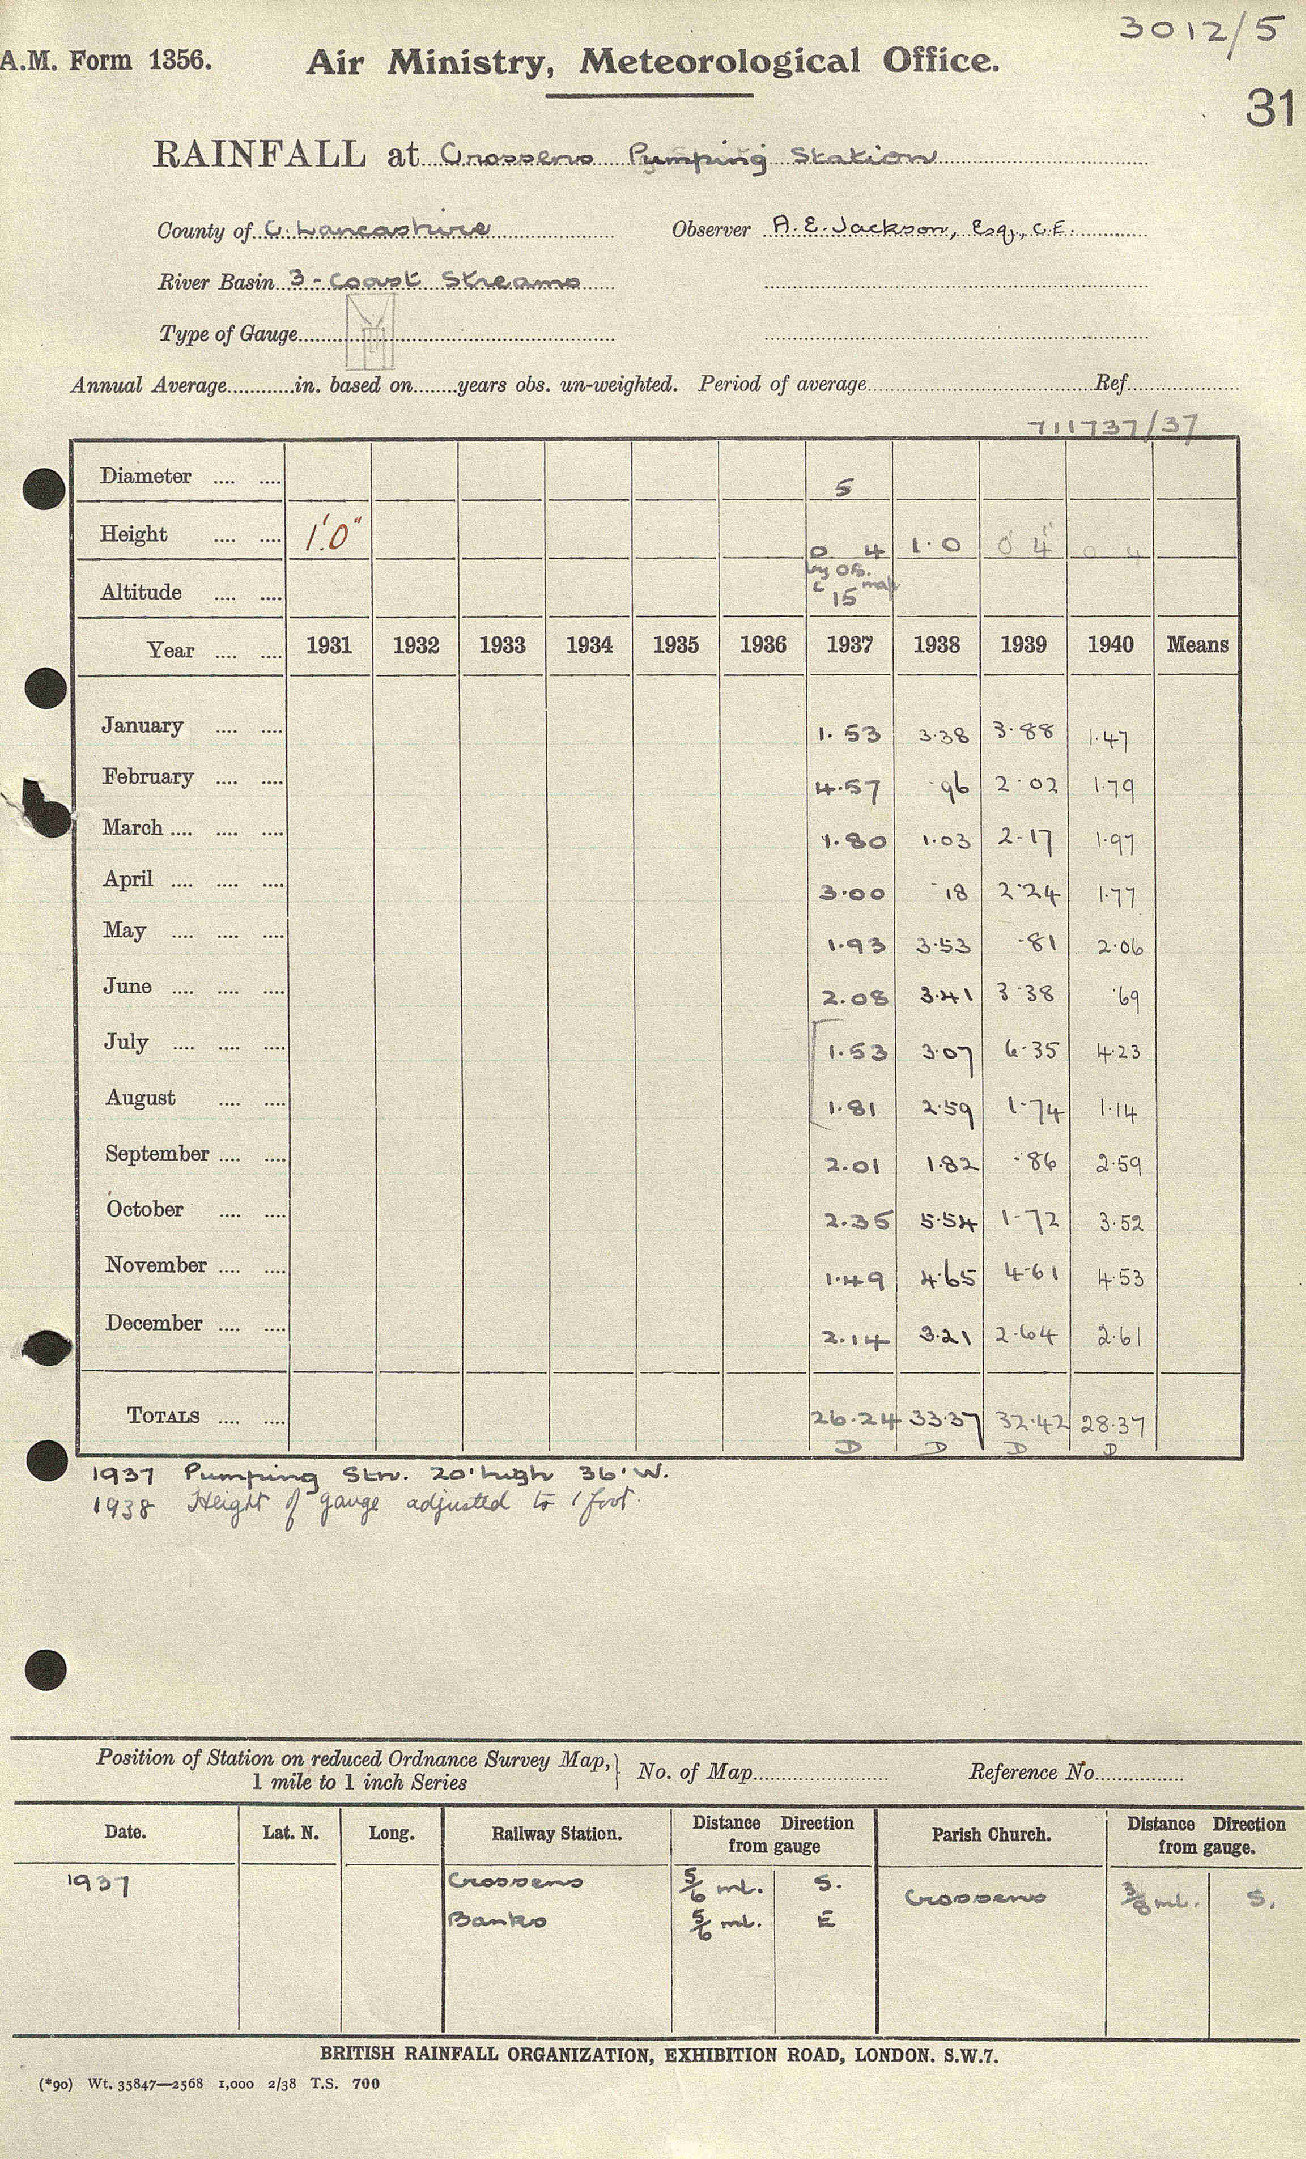 3012/5
A.M. Form 1356. Air Ministry, Meteorological Office.
31
RAINFALL at Crossens Pumping Station
County of C. Lancashire Observer A.E. Jackson, Esq., C.E.
River Basin 3 - Coast Streams
Type of Gauge
Annual Average in. based on years obs. un-weighted. Period of average Ref.
711737/37
Diameter 5
Height 1'.0" 0 4 1.0 0 4 0 4
Altitude by O.S. map c 15
Year 1931 1932 1933 1934 1935 1936 1937 1938 1939 1940 Means
January 1.53 3.38 3.88 1.47
February 4.57 .96 2.02 1.79
March 1.80 1.03 2.17 1.97
April 3.00 .18 2.24 1.77
May 1.93 3.53 .81 2.06
June 2.08 3.41 3.38 .69
July 1.53 3.07 6.35 4.23
August 1.81 2.59 1.74 1.14
September 2.01 1.82 .86 2.59
October 2.35 5.54 1.72 3.52
November 1.49 4.65 4.61 4.53
December 2.14 3.21 2.64 2.61
TOTALS 26.24 33.37 32.42 28.37
D D D D
1937 Pumping Stn. 20' high 36' W.
1938 Height of gauge adjusted to 1 foot.
Position of Station on reduced Ordnance Survey Map, 1 mile to 1 inch Series No. of Map Reference No.
Date. Lat. N. Long. Railway Station. Distance Direction from gauge Parish Church. Distance Direction from gauge.
1937 Crossens 5/6 ml. S. Crossens 3/8 ml. S.
Banks 5/6 ml. E
BRITISH RAINFALL ORGANIZATION, EXHIBITION ROAD, LONDON. S.W.7.
(*90) Wt. 35847—2568 1,000 2/38 T.S. 700